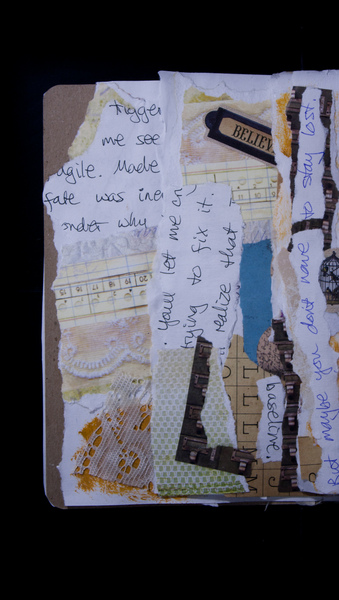 trigger
me see
agile. Made
fate was ine
under why
BELIEV
. you'll let me cry
trying to fix it.
realize that
But maybe you don't have to stay lost.
baseline.